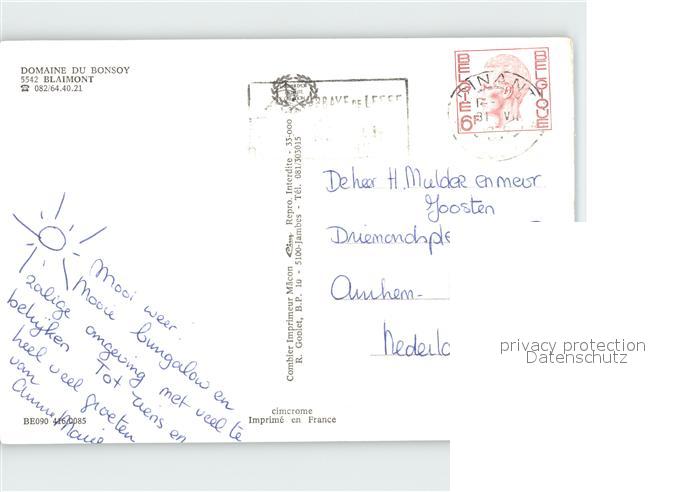 DOMAINE DU BONSOY
5542 BLAIMONT
☎ 082/64.40.21
DINANT
BELGIE
BELGIQUE
6F
De heer H. Mulder en mevr.
Joosten
Arnhem-
Mooi weer.
Mooie bungalow en
zalige omgeving met veel te
bekijken Tot ziens en
heel veel groeten
van
Anne Marie
Combier Imprimeur Mâcon Repro. Interdite - 33-000
R. Goolet, B.P. 10 - 5100-Jambes - Tél. 081/303015
BE090
cimcrome
Imprimé en France
privacy protection
Datenschutz